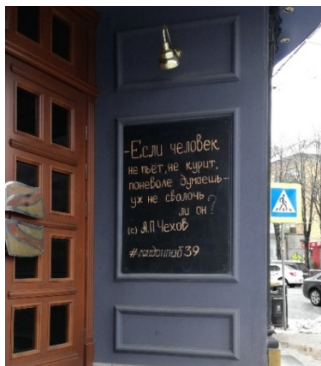 -Если человек
не пьёт, не курит,
поневоле думаешь-
уж не сволочь
ли он?
(с) А.П.Чехов
#лондонпаб39